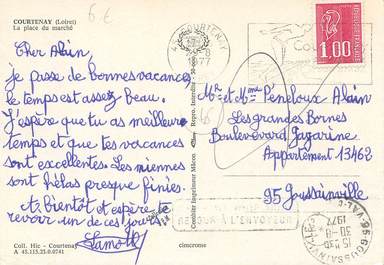 COURTENAY (Loiret)
La place du marché
6 €
Cher Alain,
je passe de bonnes vacances,
le temps est assez beau.
J'espère que tu as meilleur
temps et que tes vacances
sont excellentes. Les miennes
sont hélas presque finies.
A bientôt et espère te
revoir un de ces jours.
Coll. Hic - Courtenay
A 45.115.23.0.0741
cimcrome
Combier Imprimeur Mâcon
45 COURTENAY
1977
1.00
Mr et Mme Péneloux Alain
Les grandes Bornes
Boulevard Gagarine
Appartement 13462
95 Goussainville
RETOUR A L'ENVOYEUR
95 GOUSSAINVILLE
15 H
30-8
1977